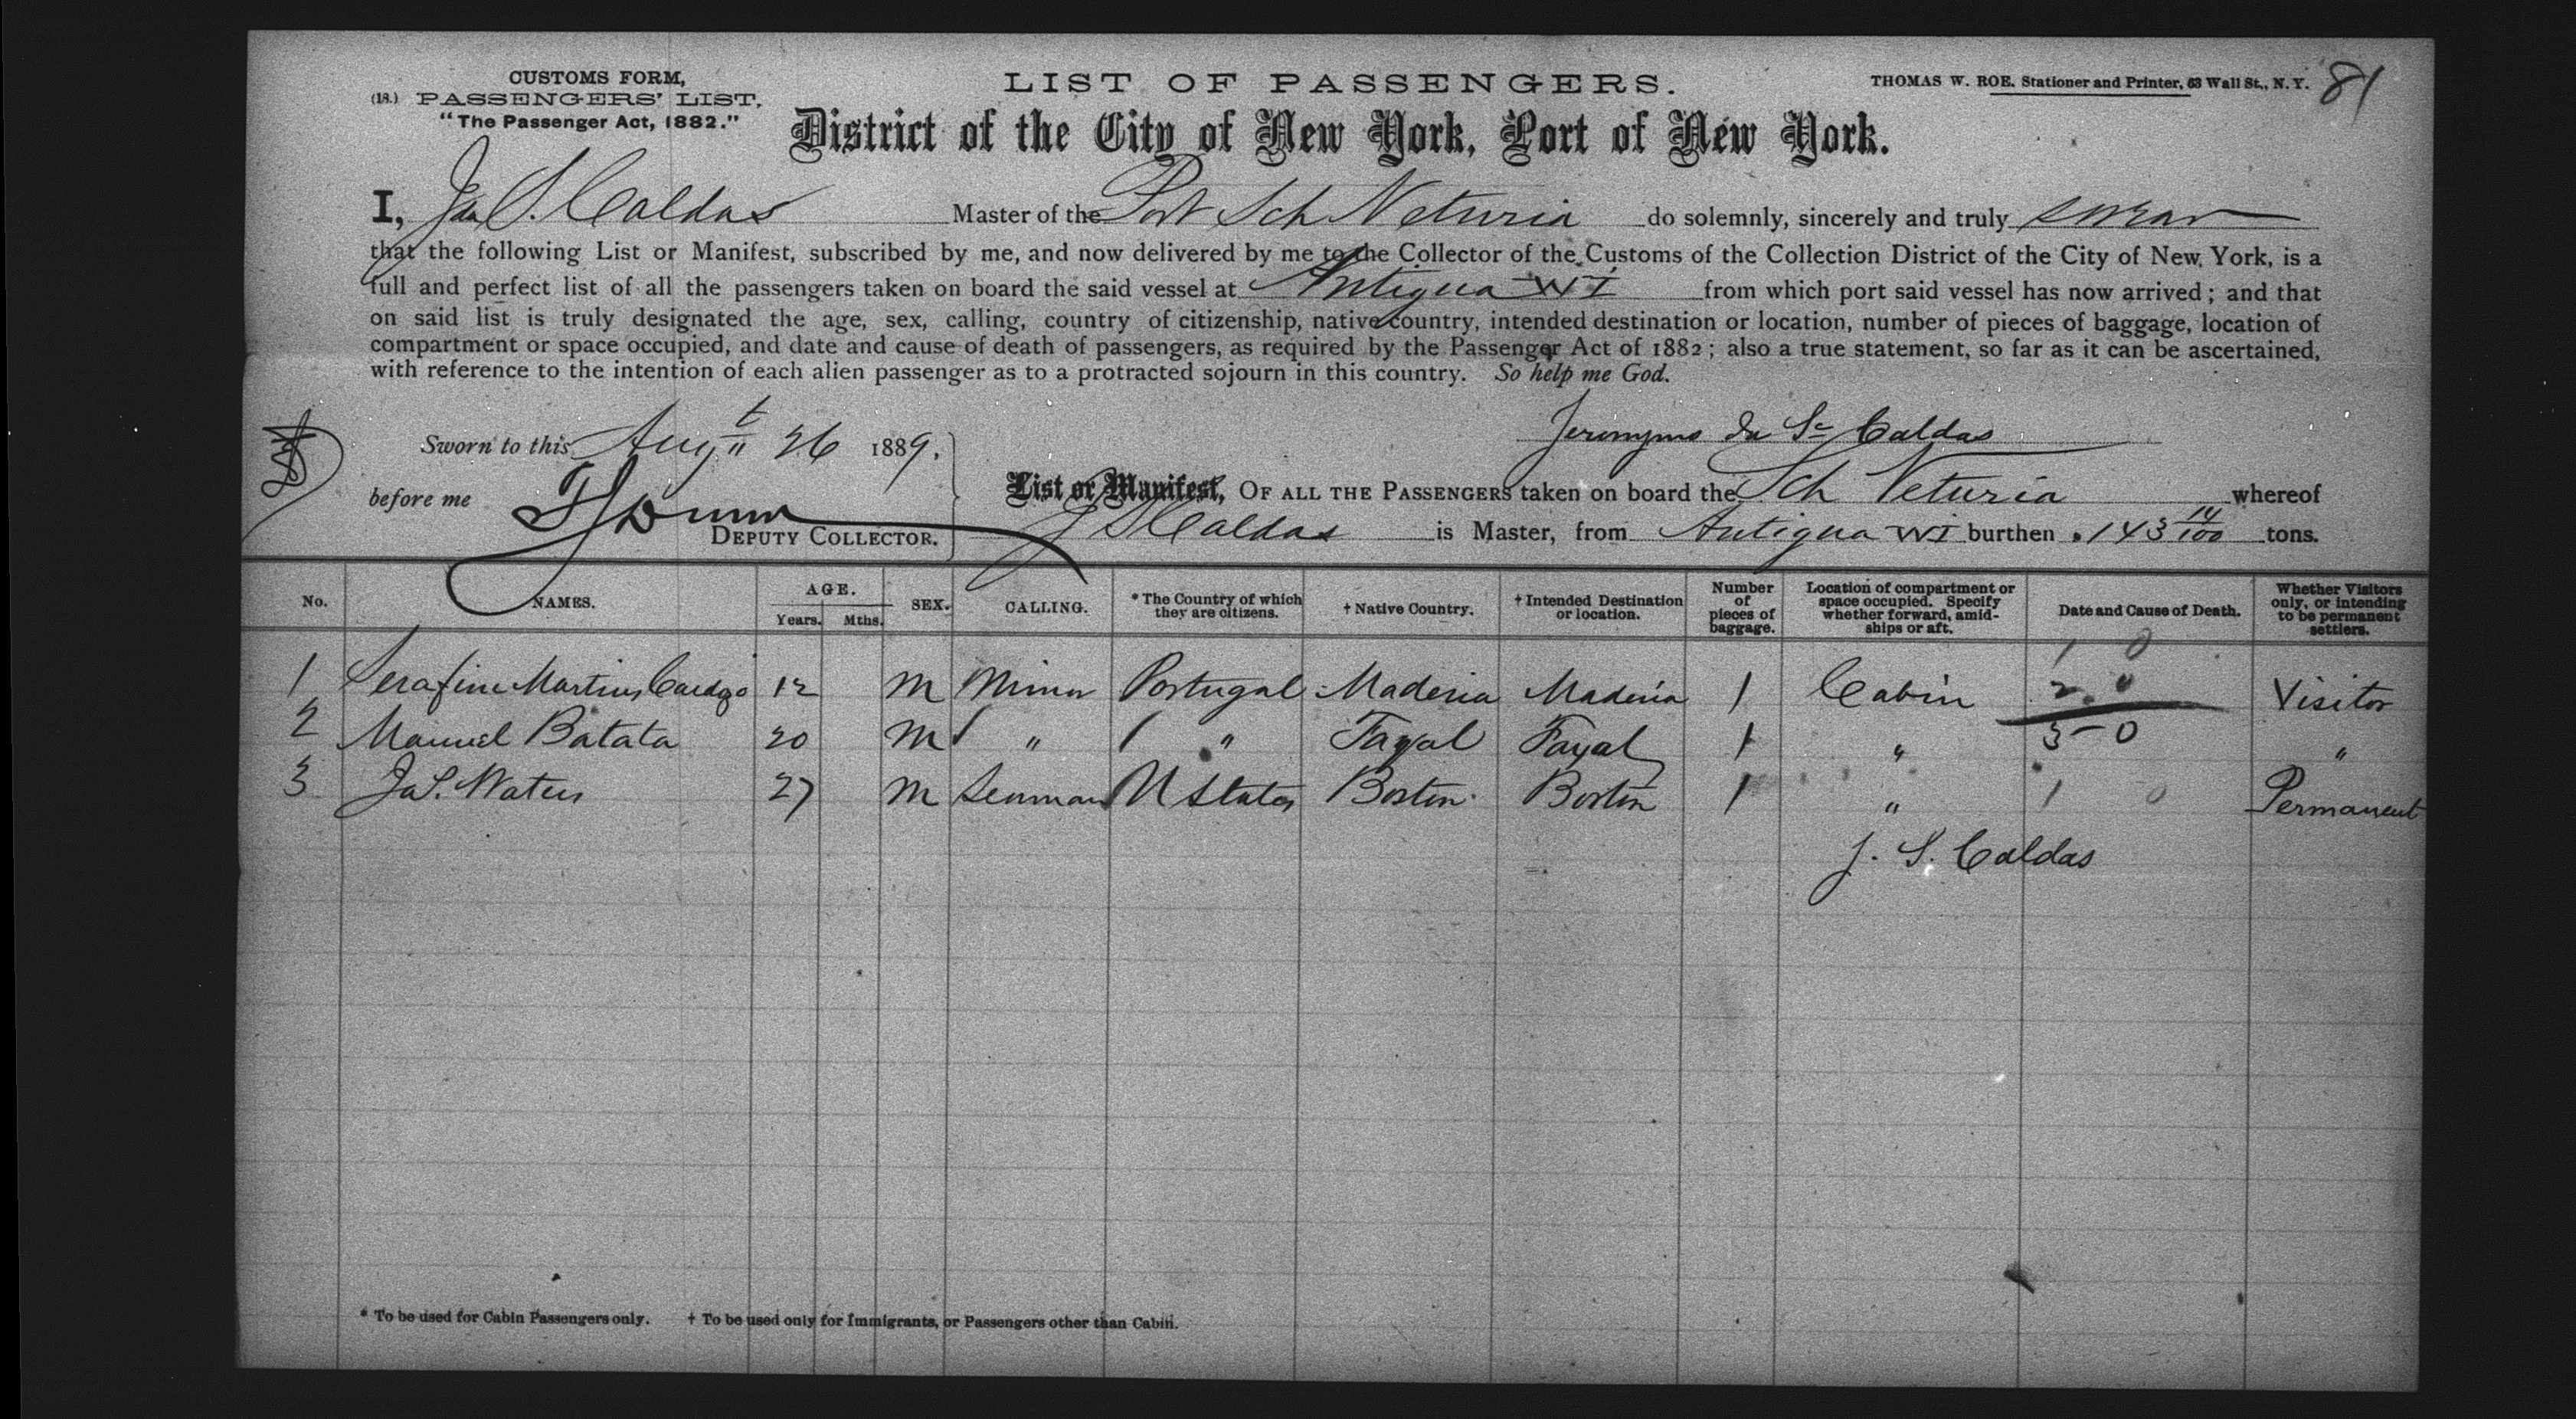 CUSTOMS FORM,
(18.) PASSENGERS' LIST.
"The Passenger Act, 1882."
LIST OF PASSENGERS.
THOMAS W. ROE, Stationer and Printer, 63 Wall St., N. Y.
81
District of the City of New York, Port of New York.
I, Ja S. Caldas Master of the Port Sch Neturia do solemnly, sincerely and truly swear
that the following List or Manifest, subscribed by me, and now delivered by me to the Collector of the Customs of the Collection District of the City of New York, is a
full and perfect list of all the passengers taken on board the said vessel at Antigua W I from which port said vessel has now arrived; and that
on said list is truly designated the age, sex, calling, country of citizenship, native country, intended destination or location, number of pieces of baggage, location of
compartment or space occupied, and date and cause of death of passengers, as required by the Passenger Act of 1882; also a true statement, so far as it can be ascertained,
with reference to the intention of each alien passenger as to a protracted sojourn in this country. So help me God.
Sworn to this Augt 26 1889.
Jeronymo da Sa Caldas
before me
DEPUTY COLLECTOR.
List or Manifest, OF ALL THE PASSENGERS taken on board the Sch Neturia whereof
J S Caldas is Master, from Antigua W I burthen 143 14/100 tons.
No. NAMES. AGE. Years. Mths. SEX. CALLING. * The Country of which they are citizens. † Native Country. † Intended Destination or location. Number of pieces of baggage. Location of compartment or space occupied. Specify whether forward, amidships or aft. Date and Cause of Death. Whether Visitors only, or intending to be permanent settlers.
1 0
1 Serafine Martins 12 M Minor Portugal Maderia Maderia 1 Cabin 2 0 Visitor
2 Manuel Batata 20 M " " Fayal Fayal 1 " 3 0 "
3 Ja S. Waters 27 M Seaman U States Boston Boston 1 " 1 0 Permanent
J. S. Caldas
* To be used for Cabin Passengers only. † To be used only for Immigrants, or Passengers other than Cabin.